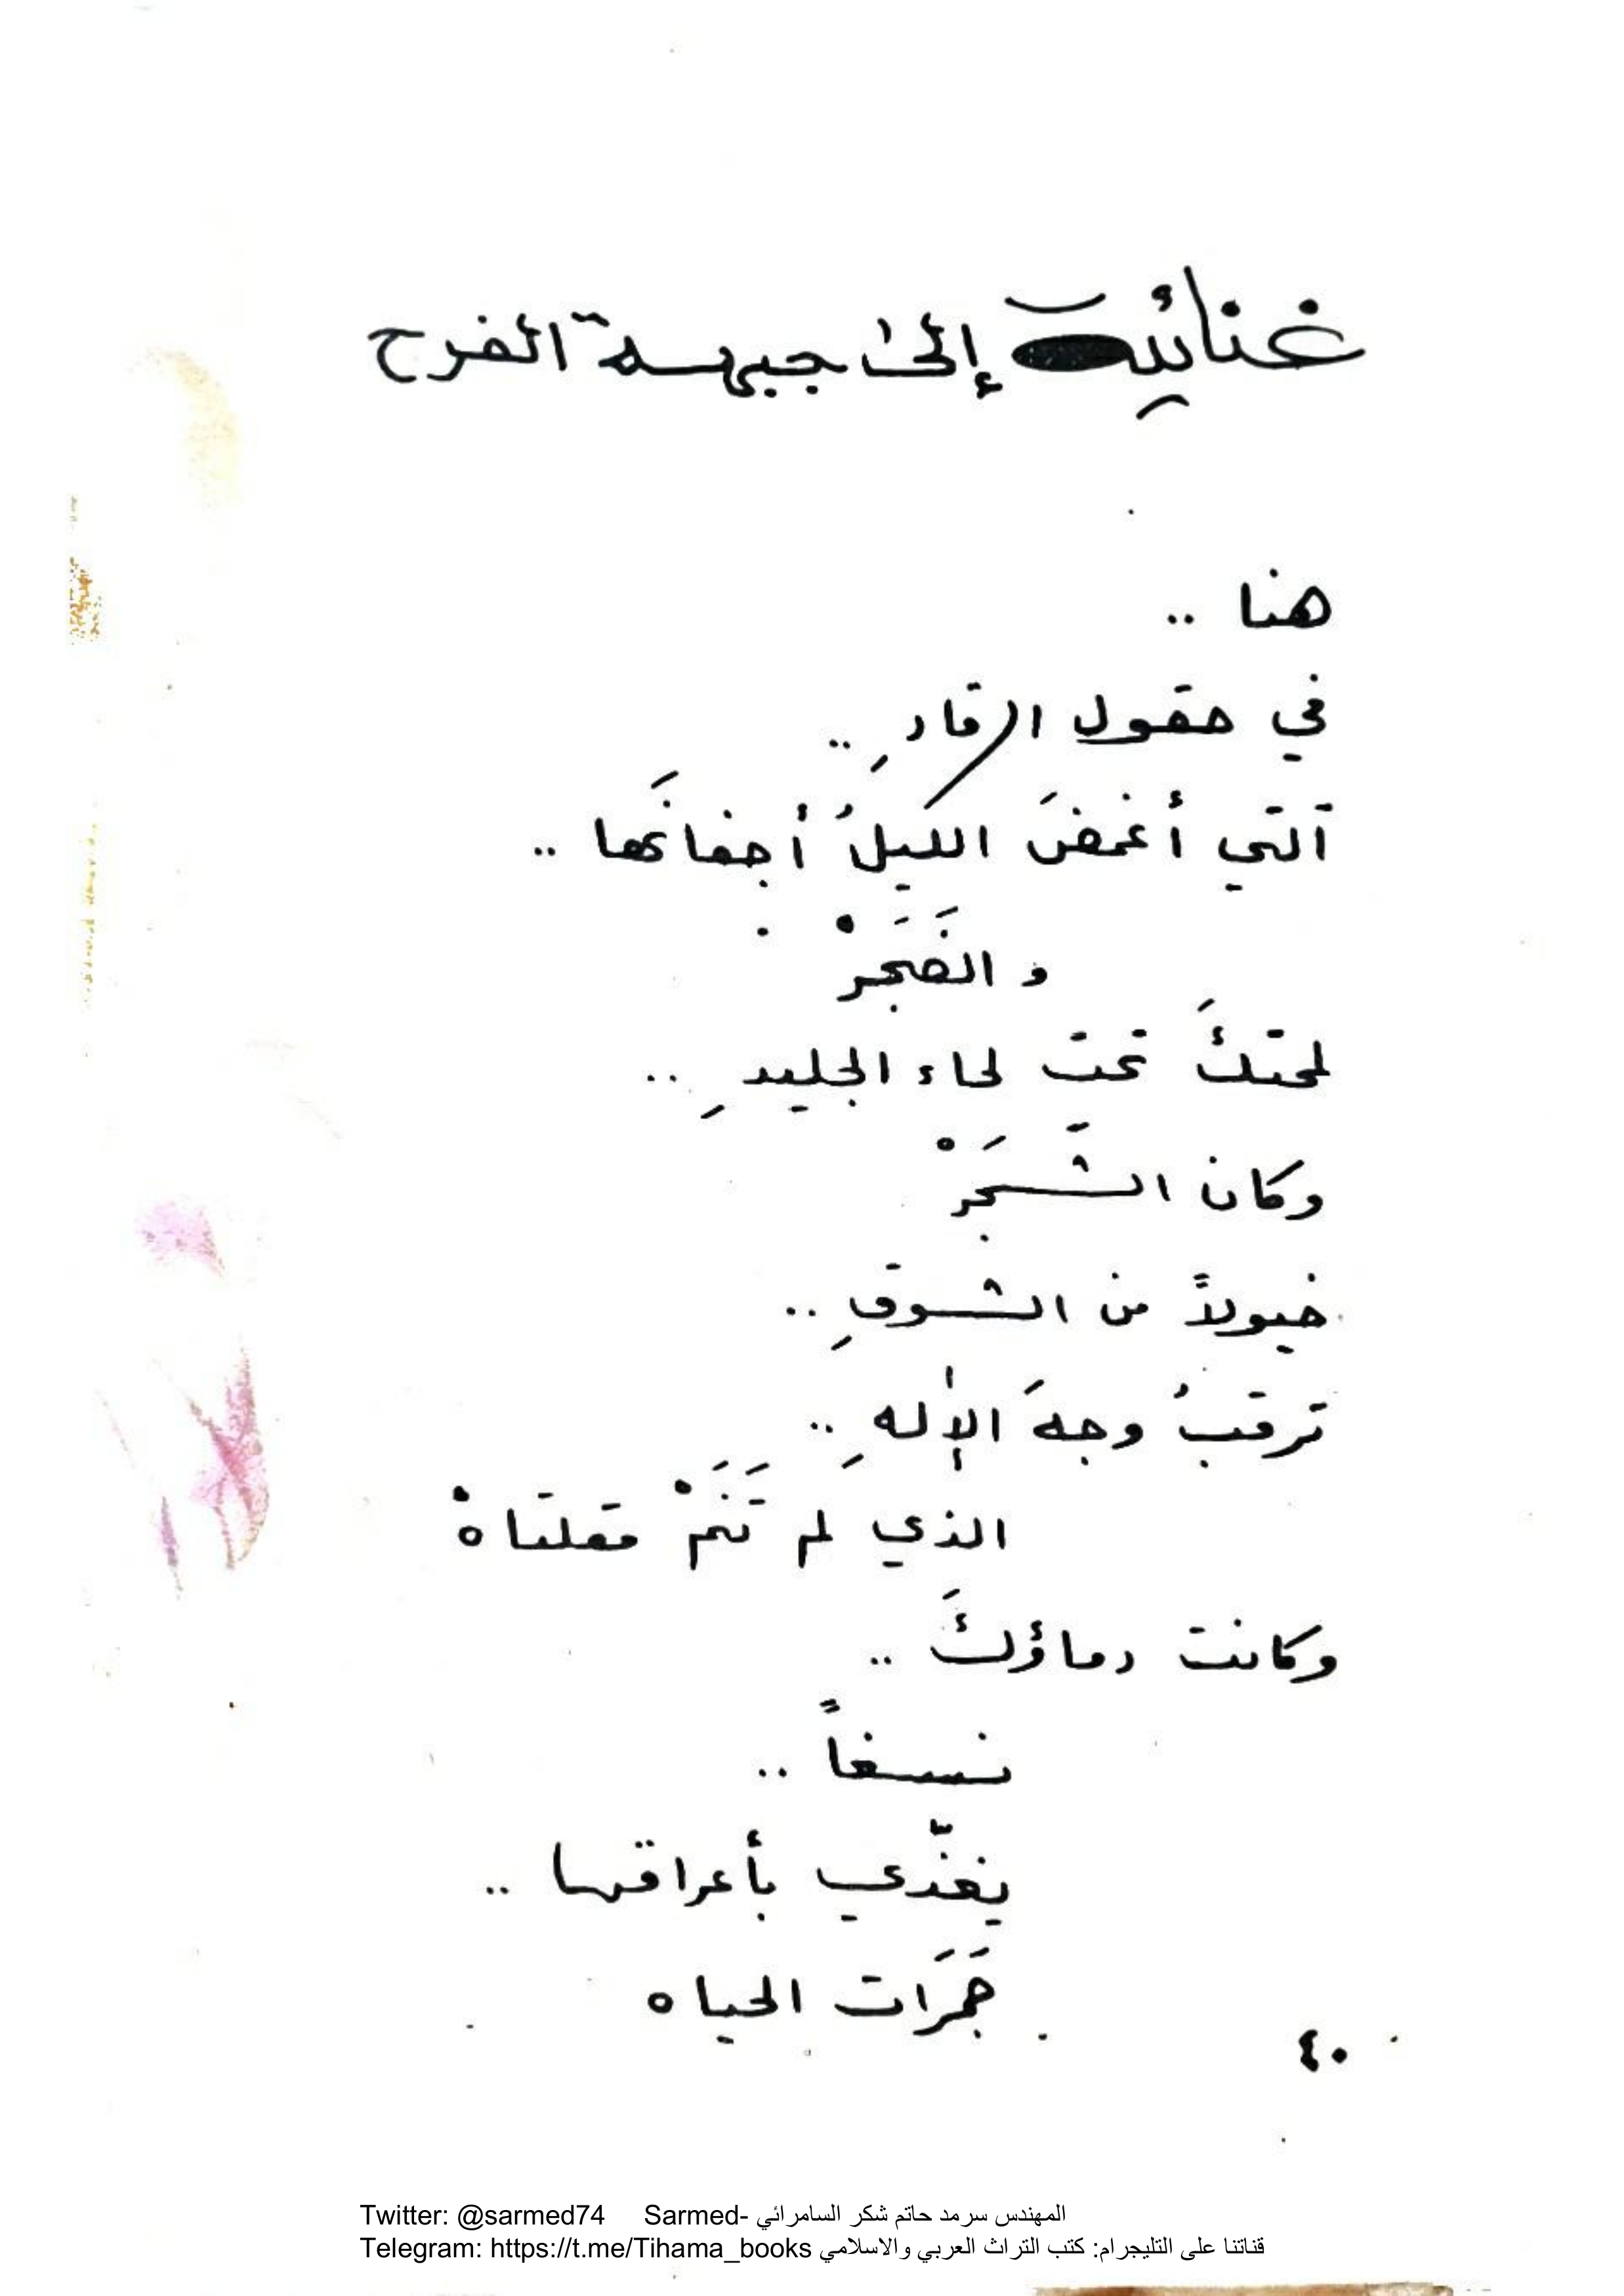 غنائية إلى جبهة الفرح
هنا ..
في حقول الرقادِ ..
التي أغمضَ الليلُ أجفانَها ..
والضَجَرْ
لمحتكَ تحت لحاء الجليدِ ..
وكان الشَّجَرْ
خيولاً من الشوقِ ..
ترقبُ وجهَ الإلهِ ..
الذي لم تَنَمْ مقلتاهْ
وكانت دماؤكَ ..
نسغاً ..
يغذّي بأعراقها ..
جَمَرَات الحياه
٤٠
Twitter: @sarmed74 Sarmed- المهندس سرمد حاتم شكر السامرائي
Telegram: https://t.me/Tihama_books قناتنا على التليجرام: كتب التراث العربي والاسلامي